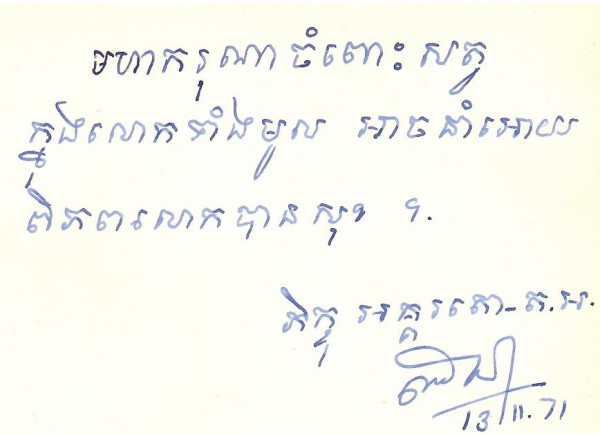 មហាករុណាចំពោះសត្វ
ក្នុងលោកទាំងមូល អាចនាំអោយ
ពិភពលោកបានសុខ ។
ភិក្ខុ អគ្គរតោ-គ.អ.
13.11.71